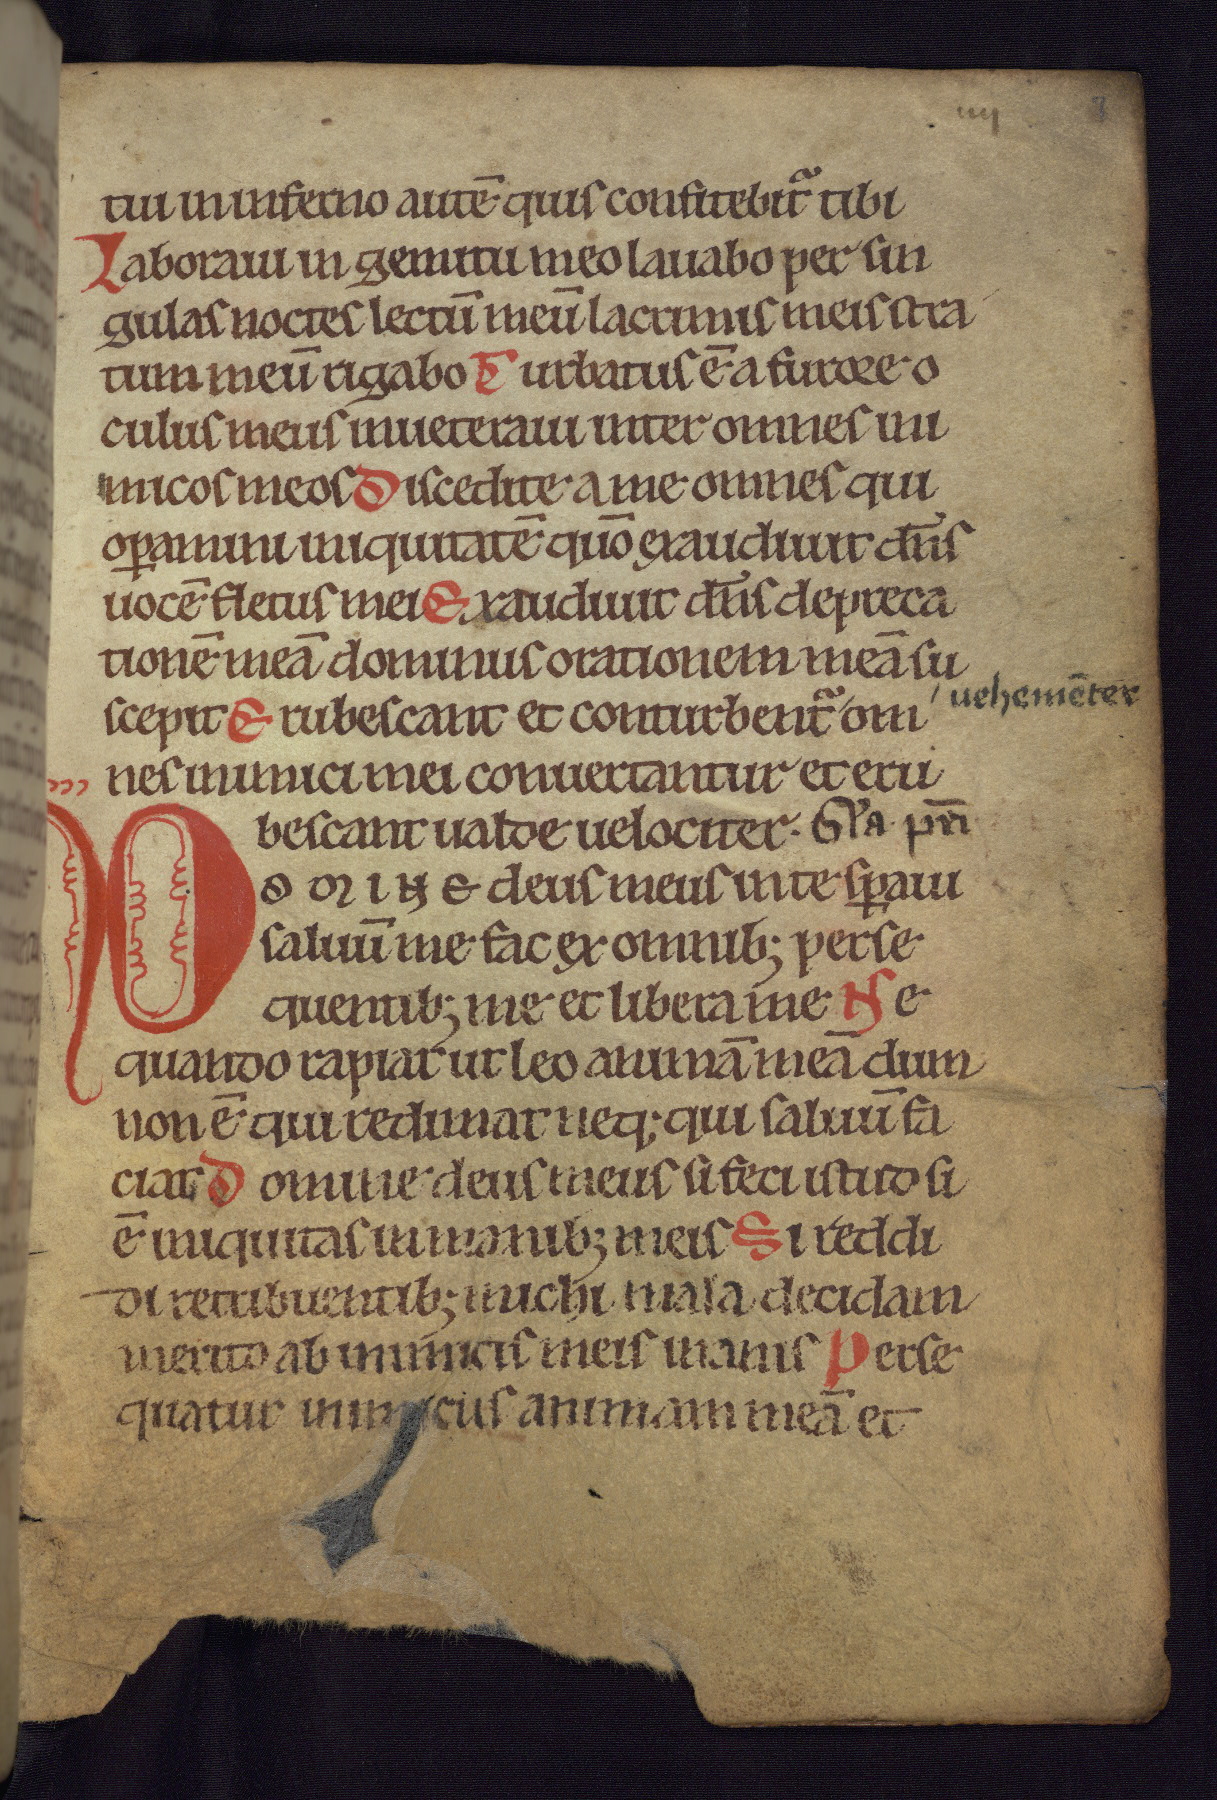 iiij 8
tui in inferno autē quis confitebit᷑ tibi
Laboraui in gemitu meo lauabo per sin
gulas noctes lectū meū lacrimis meis stra
tum meū rigabo Turbatus ē a furore o
culus meus inueteraui inter omnes ini
micos meos Discedite a me omnes qui
oꝑamini iniquitatē quō exaudiuit dn̄s
uocē fletus mei Exaudiuit dn̄s depreca
tionē meā dominus orationem meā su
scepit Erubescant et conturbent᷑ om
uehemēter
nes inimici mei conuertantur et eru
bescant ualde uelociter. Gl̄a pr̄i
DOMINE deus meus in te sꝑaui
saluū me fac ex omnib; perse
quentib; me et libera me Ne
quando rapiat ut leo animā meā dum
non ē qui redimat neq; qui saluū fa
ciat Domine deus meus si feci istud si
ē iniquitas in manib; meis Si reddi
di retribuentib; michi mala decidam
merito ab inimicis meis inanis Perse
quatur inimicus animam meā et